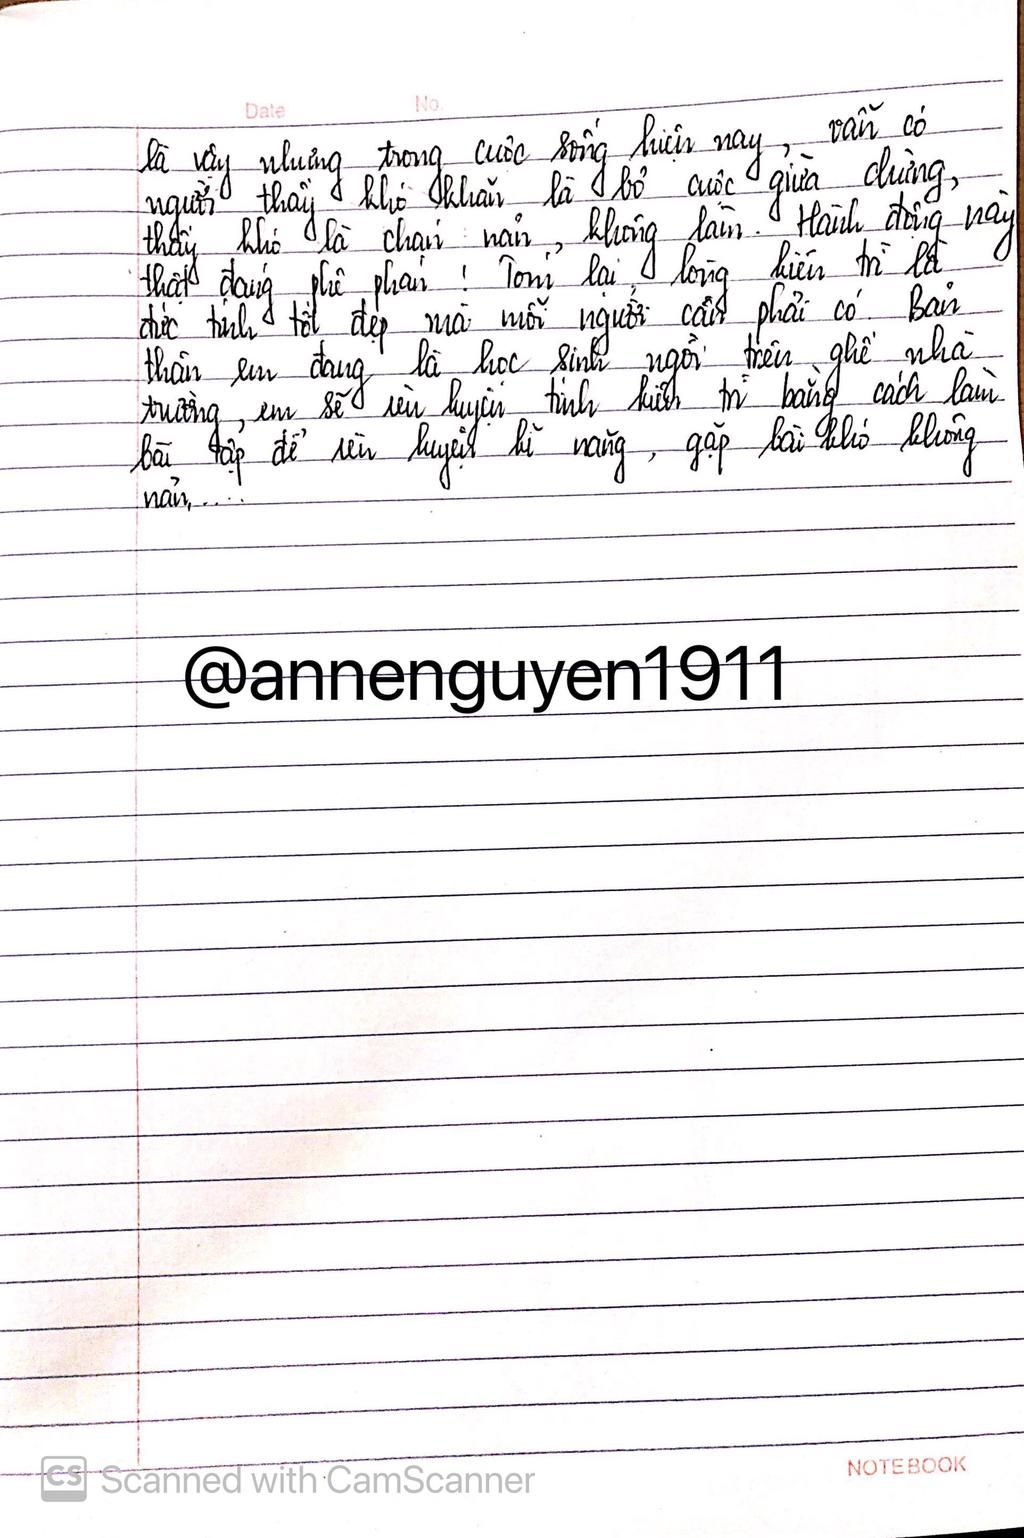 Date No.
là vậy nhưng trong cuộc sống hiện nay, vẫn có
người thấy khó khăn là bỏ cuộc giữa chừng,
thấy khó là chán nản, không làm. Hành động này
thật đáng phê phán! Tóm lại, lòng kiên trì là
đức tính tốt đẹp mà mỗi người cần phải có. Bản
thân em đang là học sinh ngồi trên ghế nhà
trường, em sẽ rèn luyện tính kiên trì bằng cách làm
bài tập để rèn luyện kĩ năng, gặp bài khó không
nản,....
@annenguyen1911
NOTEBOOK
CS Scanned with CamScanner